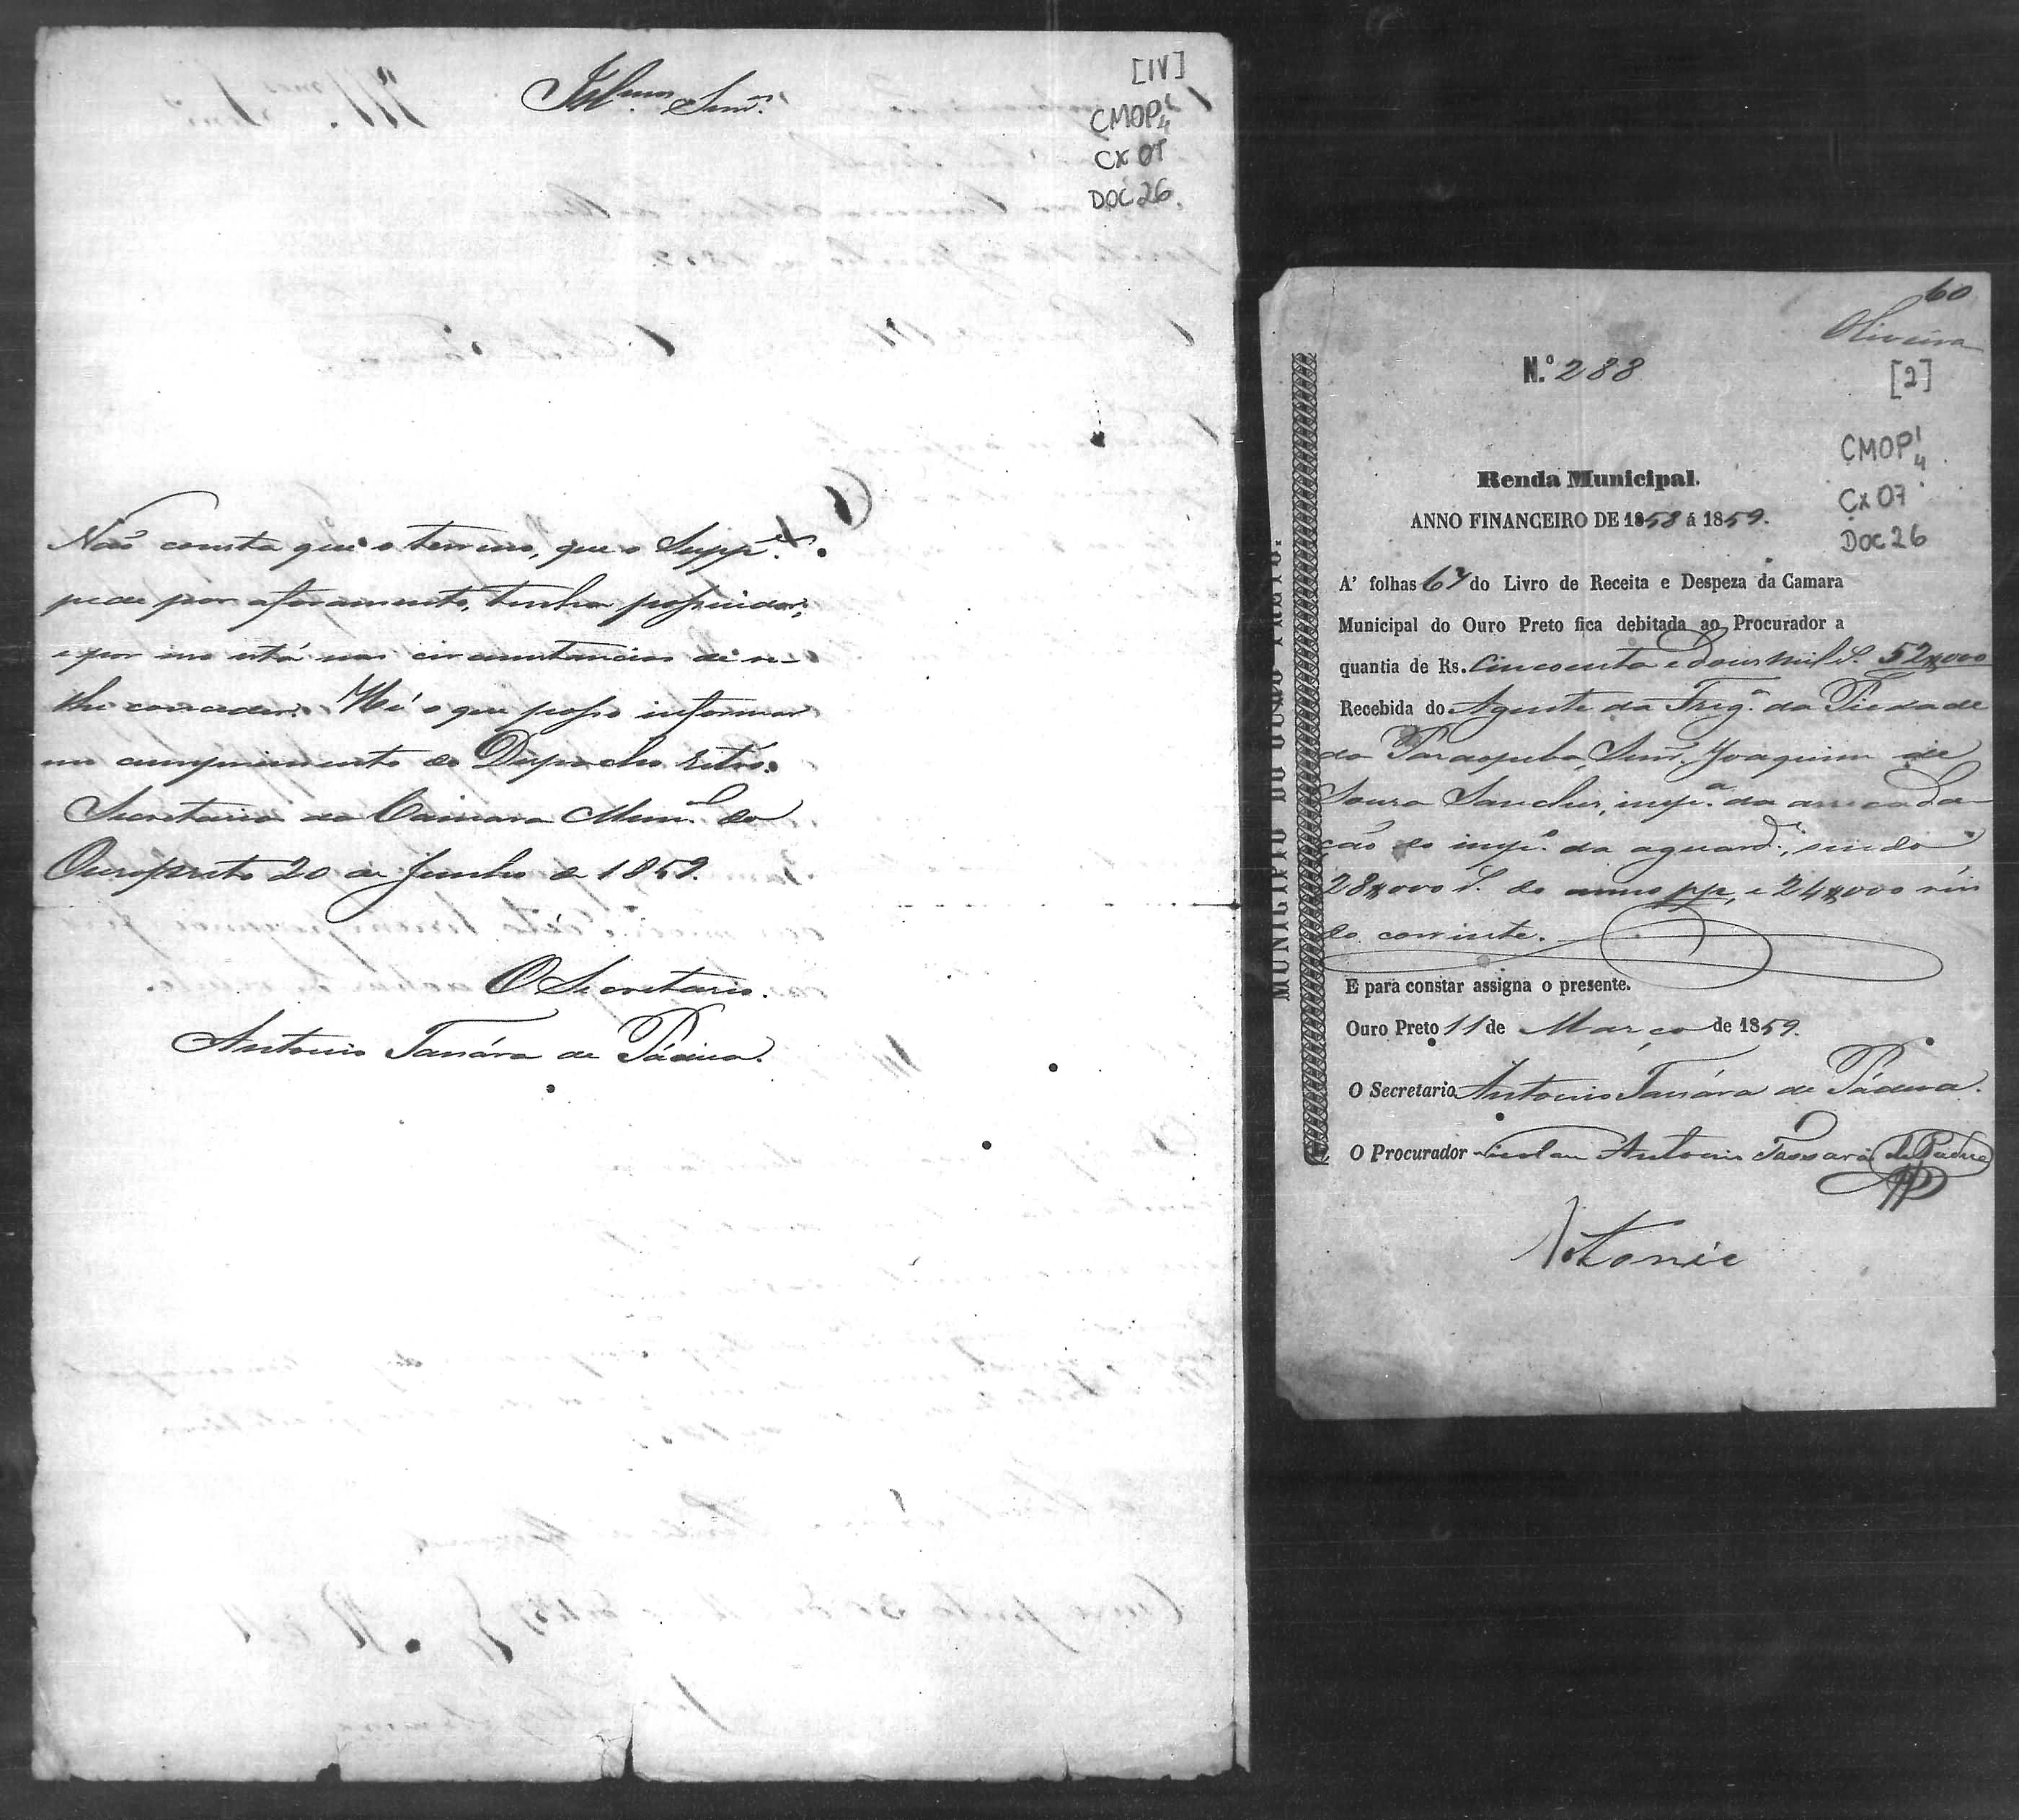 Illmos Snrs
[IV]
CMOP 1/4
CX 07
DOC 26.
Não consta que o terreno, que o Suppe.
pede por aforamento, tenha possuidor;
e por isso está nas circunstancias de se-
lhe conceder. Hé o que posso informar
em cumprimento do Despacho retro.
Secretaria da Camara Munal do
Ouropreto 20 de Junho de 1859.
O Secretario.
Antonio Tassára de Pádua.
60
Oliveira
N.º 288
[2]
CMOP 1/4
CX 07
DOC 26
Renda Municipal.
ANNO FINANCEIRO DE 1858 á 1859.
MUNICIPIO DO OURO PRETO.
A' folhas 67 do Livro de Receita e Despeza da Camara
Municipal do Ouro Preto fica debitada ao Procurador a
quantia de Rs. Cincoenta e dous mil rs. 52$000
Recebida do Agente da Frega. da Piedade
da Paraopeba, Snr. Joaquim de
Souza Sanches, impa. da arrecada-
ção do impo. da aguarde., sendo
28$000 rs. do anno pp, e 24$000 reis
do corrente.
E para constar assigna o presente.
Ouro Preto 11 de Março de 1859.
O Secretario Antonio Tassára de Pádua.
O Procurador Nicolau Antonio Tassara de Padua